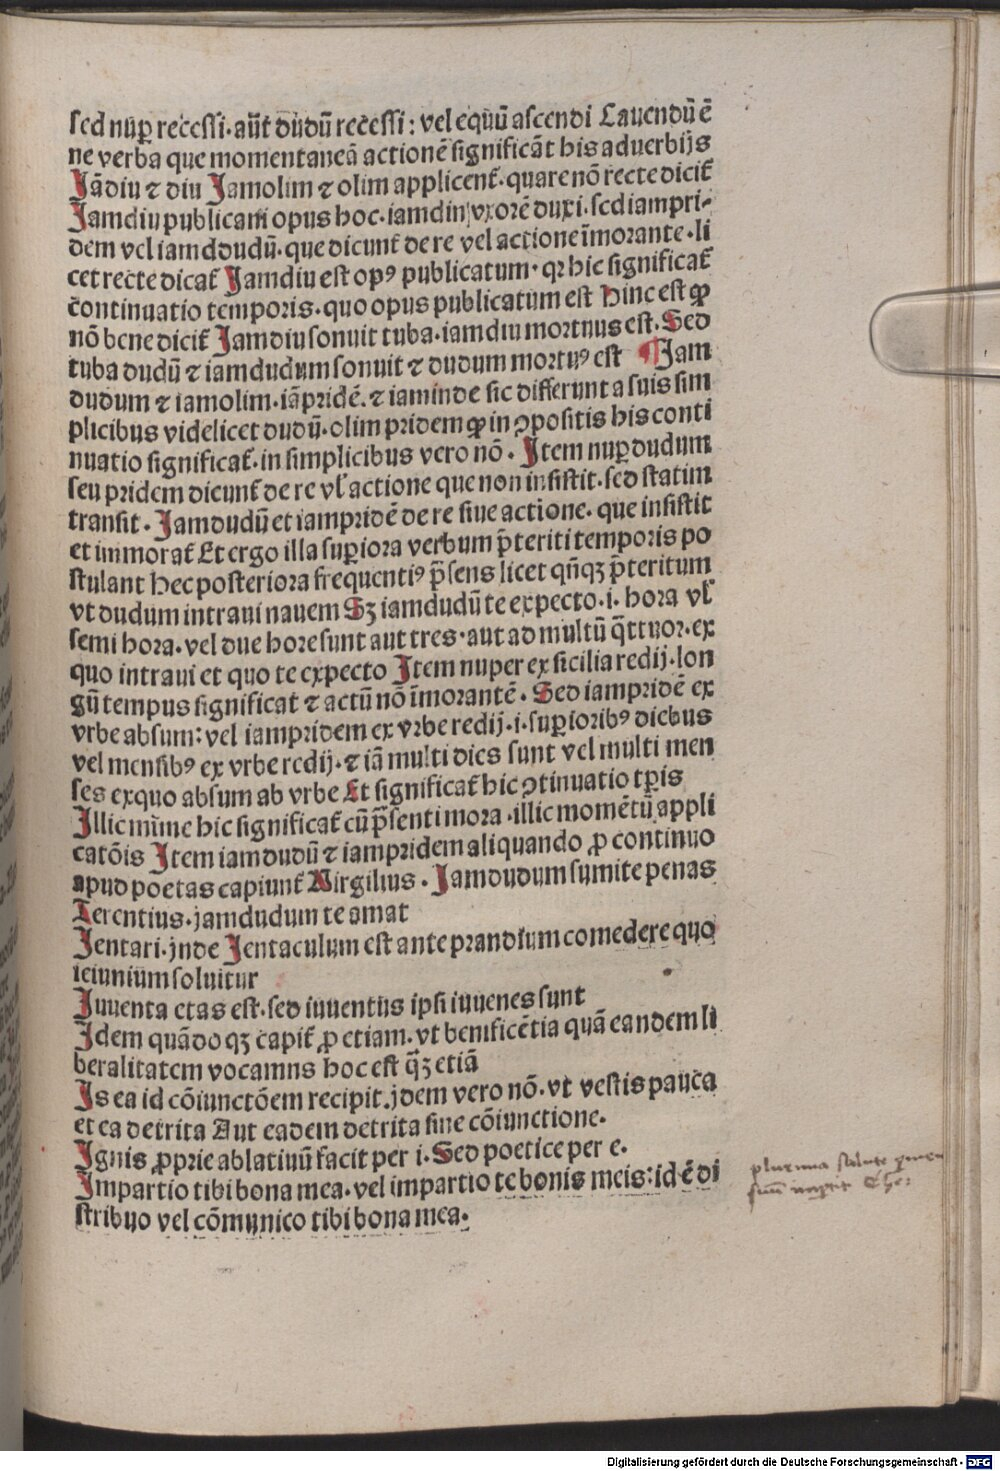 sed nuꝑ recessi. aūt dudū recessi: vel equū ascendi Cauendū ē
ne verba que momentaneā actionē significāt his aduerbijs
Jādiu ⁊ diu Jamolim ⁊ olim applicent̄. quare nō recte dicit̄
Jamdiu publicam opus hoc. iamdin vxorē duxi. sed iampri-
dem vel iamddudū. que dicunt̄ de re vel actione īmorante. li
cet recte dicat̄ Jamdiu est opꝰ publicatum. qꝛ hic significat̄
continuatio temporis. quo opus publicatum est Hinc est ꝙ
nō bene dicit̄ Jamdiu sonuit tuba. iamdiu mortuus est. Sed
tuba dudū ⁊ iamdudum sonuit ⁊ dudum mortuꝰ est ¶ Jam
dudum ⁊ iamolim. iāpridē. ⁊ iaminde sic differunt a suis sim
plicibus videlicet dudū. olim pridem ꝙ in ꝯpositis his conti
nuatio significat̄. in simplicibus vero nō. Jtem nuꝑ dudum
seu pridem dicunt̄ de re vl̓ actione que non insistit. sed statim
transit. Jamdudū et iampridē de re siue actione. que insistit
et immorat̄ Et ergo illa suꝑiora verbum p̄teriti temporis po
stulant hec posteriora frequentiꝰ p̄sens licet qn̄qꝫ p̄teritum
vt dudum intraui nauem Sꝫ iamdudū te expecto. i. hora vl̓
semi hora. vel due hore sunt aut tres. aut ad multū q̄ttuor. ex
quo intraui et quo te expecto Jtem nuper ex sicilia redij. lon
gū tempus significat ⁊ actū nō īmorantē. Sed iampridē ex
vrbe absum: vel iampridem ex vrbe redij. i. suꝑioribꝰ diebus
vel mensibꝰ ex vrbe redij. ⁊ iā multi dies sunt vel multi men
ses exquo absum ab vrbe Et significat̄ hic ꝯtinuatio tꝑis
Jllic mīme hic significat̄ cū p̄senti mora. illic momētū appli
catōis Jtem iamdudū ⁊ iampridem aliquando ꝓ continuo
apud poetas capiunt̄ Virgilius. Jamdudum sumite penas
Terentius. jamdudum te amat
Jentari. jnde Jentaculum est ante prandium comedere quo
ieiunium soluitur
Juuenta etas est. sed iuuentus ipsi iuuenes sunt
Jdem quādo qꝫ capit̄ ꝓ etiam. vt benificētia quā eandem li
beralitatem vocamns hoc est q̄ꝫ etiā
Js ea id cōiunctōem recipit. jdem vero nō. vt vestis pauca
et ea detrita Aut eadem detrita sine cōiunctione.
Jgnis ꝓprie ablatiuū facit per i. Sed poetice per e.
Jmpartio tibi bona mea. vel impartio te bonis meis: id ē di
stribuo vel cōmunico tibi bona mea.
plurima salute
Digitalisierung gefördert durch die Deutsche Forschungsgemeinschaft - DFG